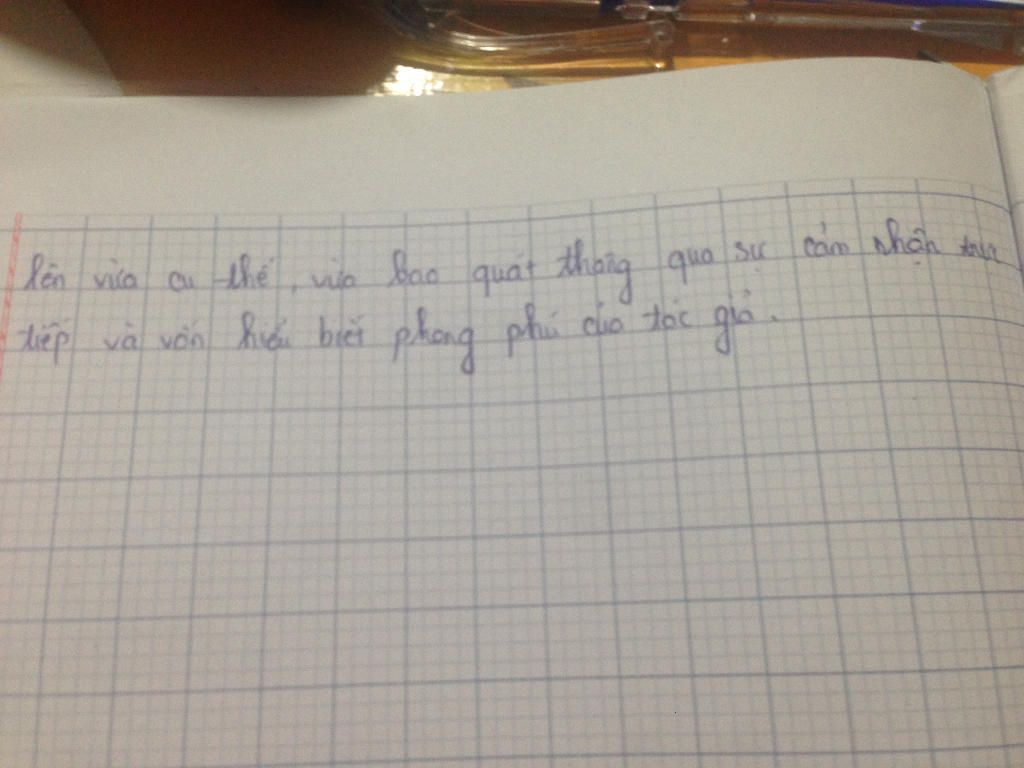 lên vừa cụ thể, vừa bao quát thông qua sự cảm nhận trực
tiếp và vốn hiểu biết phong phú của tác giả.